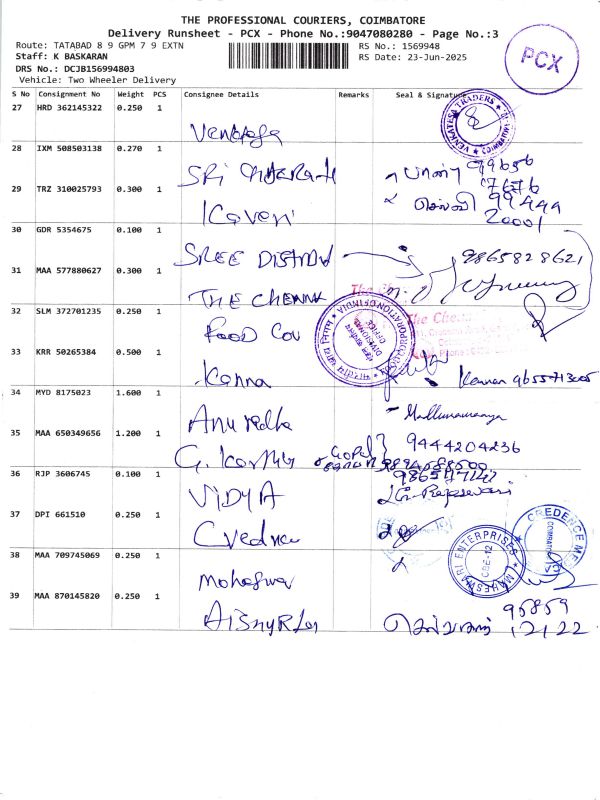 THE PROFESSIONAL COURIERS, COIMBATORE
Delivery Runsheet - PCX - Phone No.:9047080280 - Page No.:3
Route: TATABAD 8 9 GPM 7 9 EXTN
RS No.: 1569948
Staff: K BASKARAN
RS Date: 23-Jun-2025
DRS No.: DCJB156994803
Vehicle: Two Wheeler Delivery
PCX
S No Consignment No Weight PCS Consignee Details Remarks Seal & Signature
27 HRD 362145322 0.250 1
VENKATESA TRADERS
28 IXM 508503138 0.270 1
SRi
99656
29 TRZ 310025793 0.300 1
Kaveri
செல்வி 99444
20001
30 GDR 5354675 0.100 1
SREE DISTRIBU
9865828621
31 MAA 577880627 0.300 1
THE CHENNA
32 SLM 372701235 0.250 1
Food Cor
The Che
CORPORATION OF INDIA
DIVISIONAL OFFICE
33 KRR 50265384 0.500 1
Kanna
Kannan 9655713005
34 MYD 8175023 1.600 1
Anuradha
35 MAA 650349656 1.200 1
9444204236
Gopal
9894588500
36 RJP 3606745 0.100 1
ViDYA
37 DPI 661510 0.250 1
CREDENCE ME
COIMBATORE
38 MAA 709745069 0.250 1
Maheswar
MAHESWARI ENTERPRISES
CBE-12
39 MAA 870145820 0.250 1
95859
12122